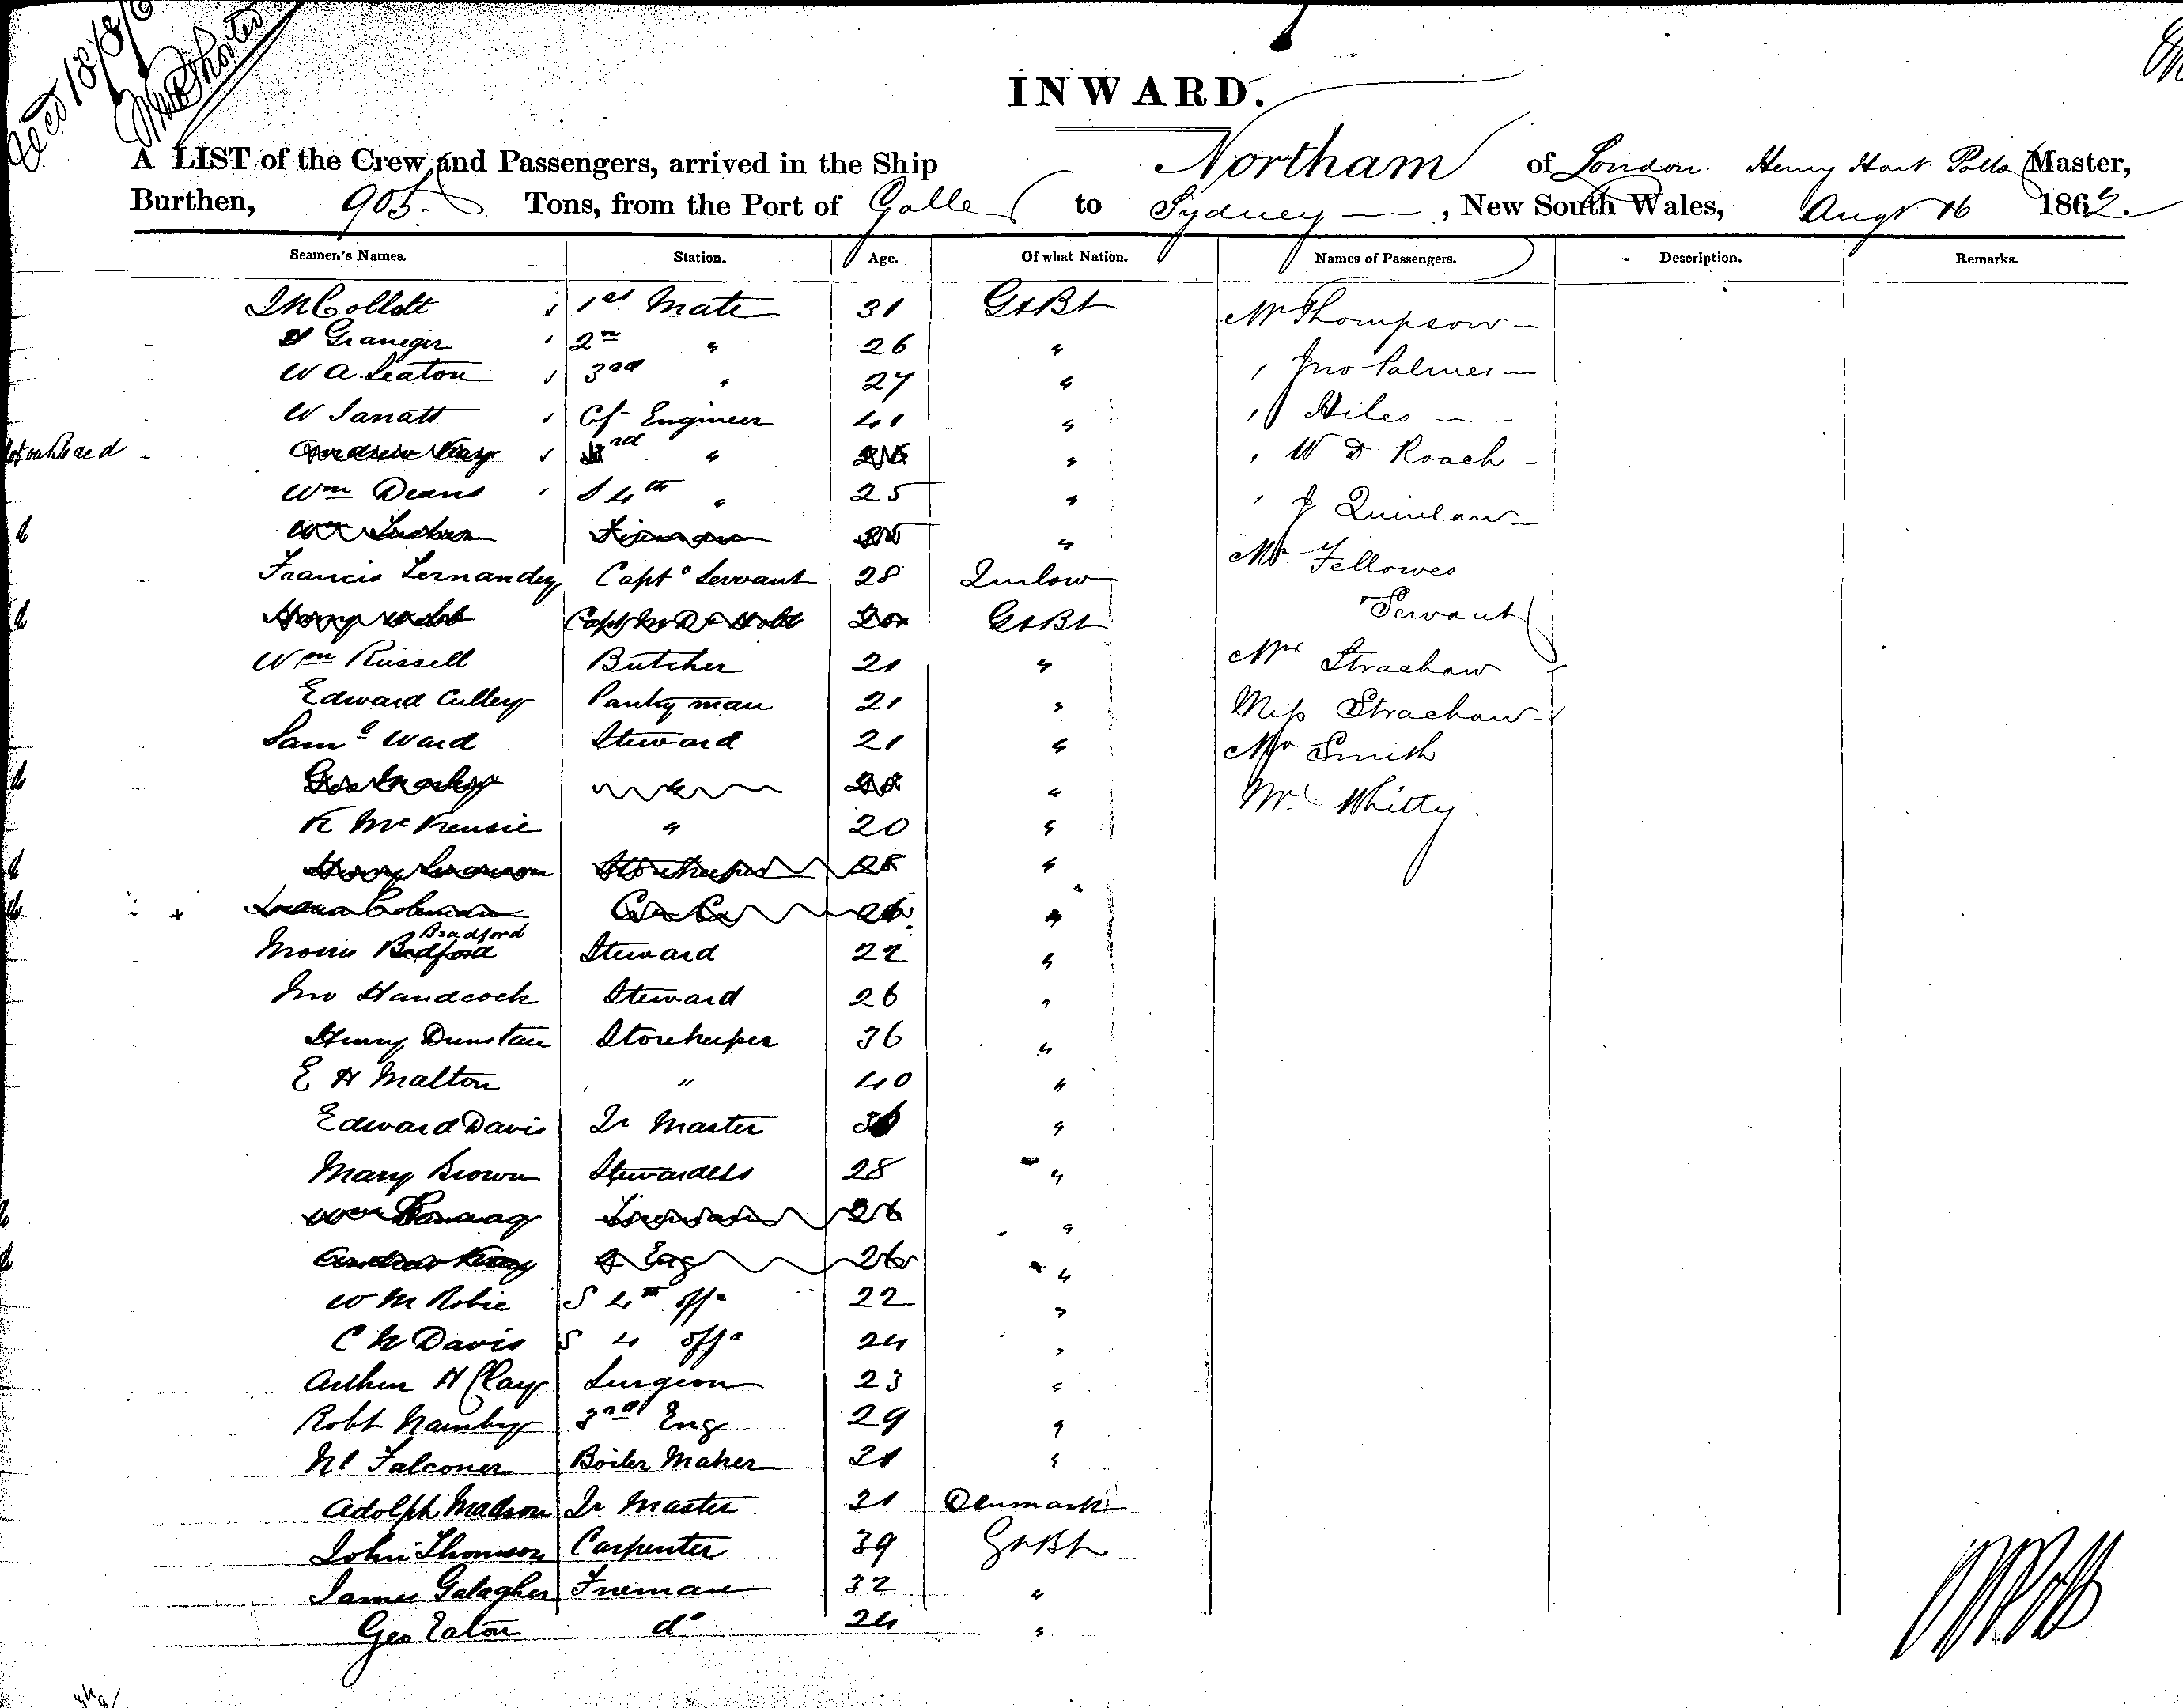 INWARD.
A LIST of the Crew and Passengers, arrived in the Ship Northam of London. Henry Hart Potts Master,
Burthen, 905. Tons, from the Port of Galle to Sydney, New South Wales, Augt 16 1862.
Seamen's Names. Station. Age. Of what Nation. Names of Passengers. Description. Remarks.
Collett 1st Mate 31 Gt Bt Mr Thompson
H Graneger 2nd " 26 " " Jno Palmer
W A Seaton 3rd " 27 " " Hiles
W Cf Engineer 41 "
Andrew Kay 3rd " " " W D Roach
Wm Deans S 4th " 25 " " J Quinlan
Wm Fireman "
Francis Fernandez Capts Servant 28 Mr Fellowes
Servant
Gt Bt
Wm Russell Butcher 21 " Mrs Strachan
Edward Culley Pantry man 21 " Miss Strachan
Saml Ward Steward 21 " Mr Smith
" Mr Whitty.
K McKensie " 20 "
Henry Storekeeper 28 "
Coleman 26 "
Bradford
Morris Bedford Steward 22 "
Jno Handcock Steward 26 "
Henry Dunstan Storekeeper 36 "
E H Malton " 40 "
Edward Davis Qr Master 36 "
Mary Brown Stewardess 28 "
Wm Fireman 26 "
Andrew Kay Eng 26 "
W M Robie S 4th offr 22 "
C W Davis S 4 offr 24 "
Arthur H Clay Surgeon 23 "
Robt Namby 3rd Eng 29 "
Nl Falconer Boiler Maker 21 "
Adolph Madson Qr Master 21 Denmark
John Thomson Carpenter 39 Gt Bt
James Galagher Fireman 32 "
Geo Eaton do 24 "